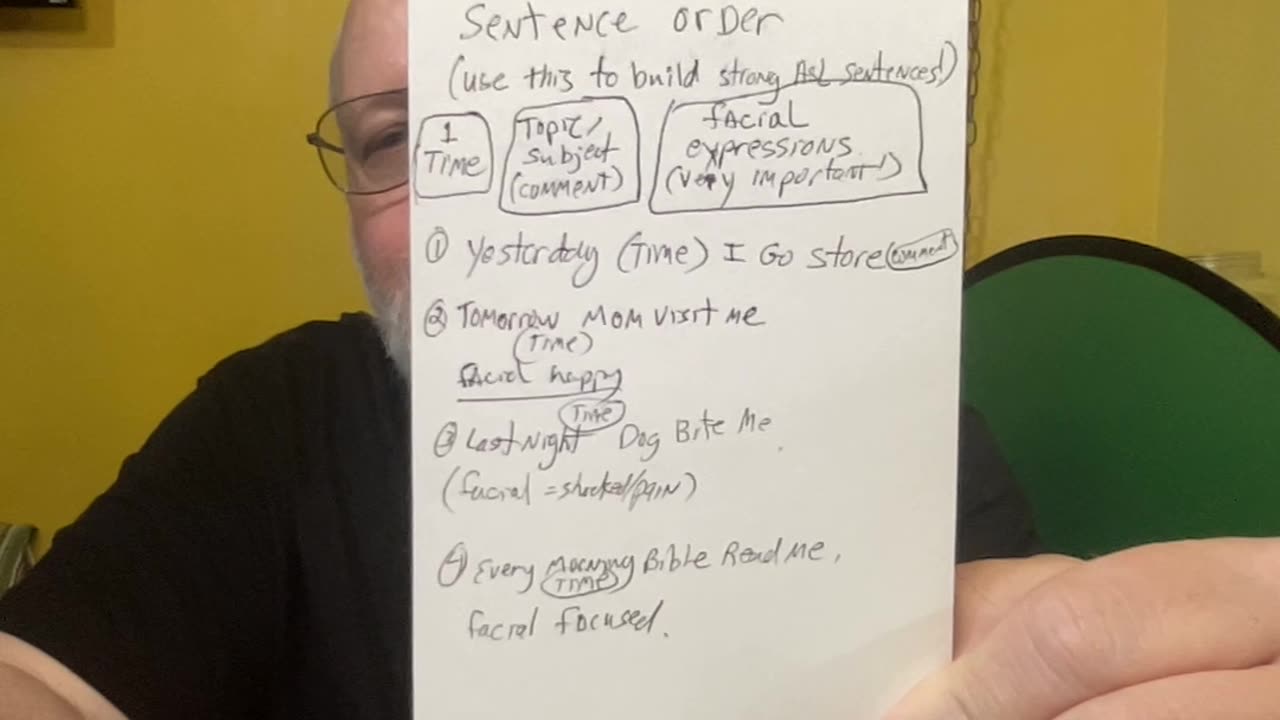 Sentence order
(use this to build strong ASL sentences!)
1
Time
Topic/
subject
(comment)
facial
expressions
(very important!)
① Yesterday (Time) I Go store (comment)
② Tomorrow Mom visit me
(Time)
facial happy
(Time)
③ Last Night Dog Bite Me.
(facial = shocked/pain)
④ Every Morning Bible Read Me.
(Time)
facial focused.